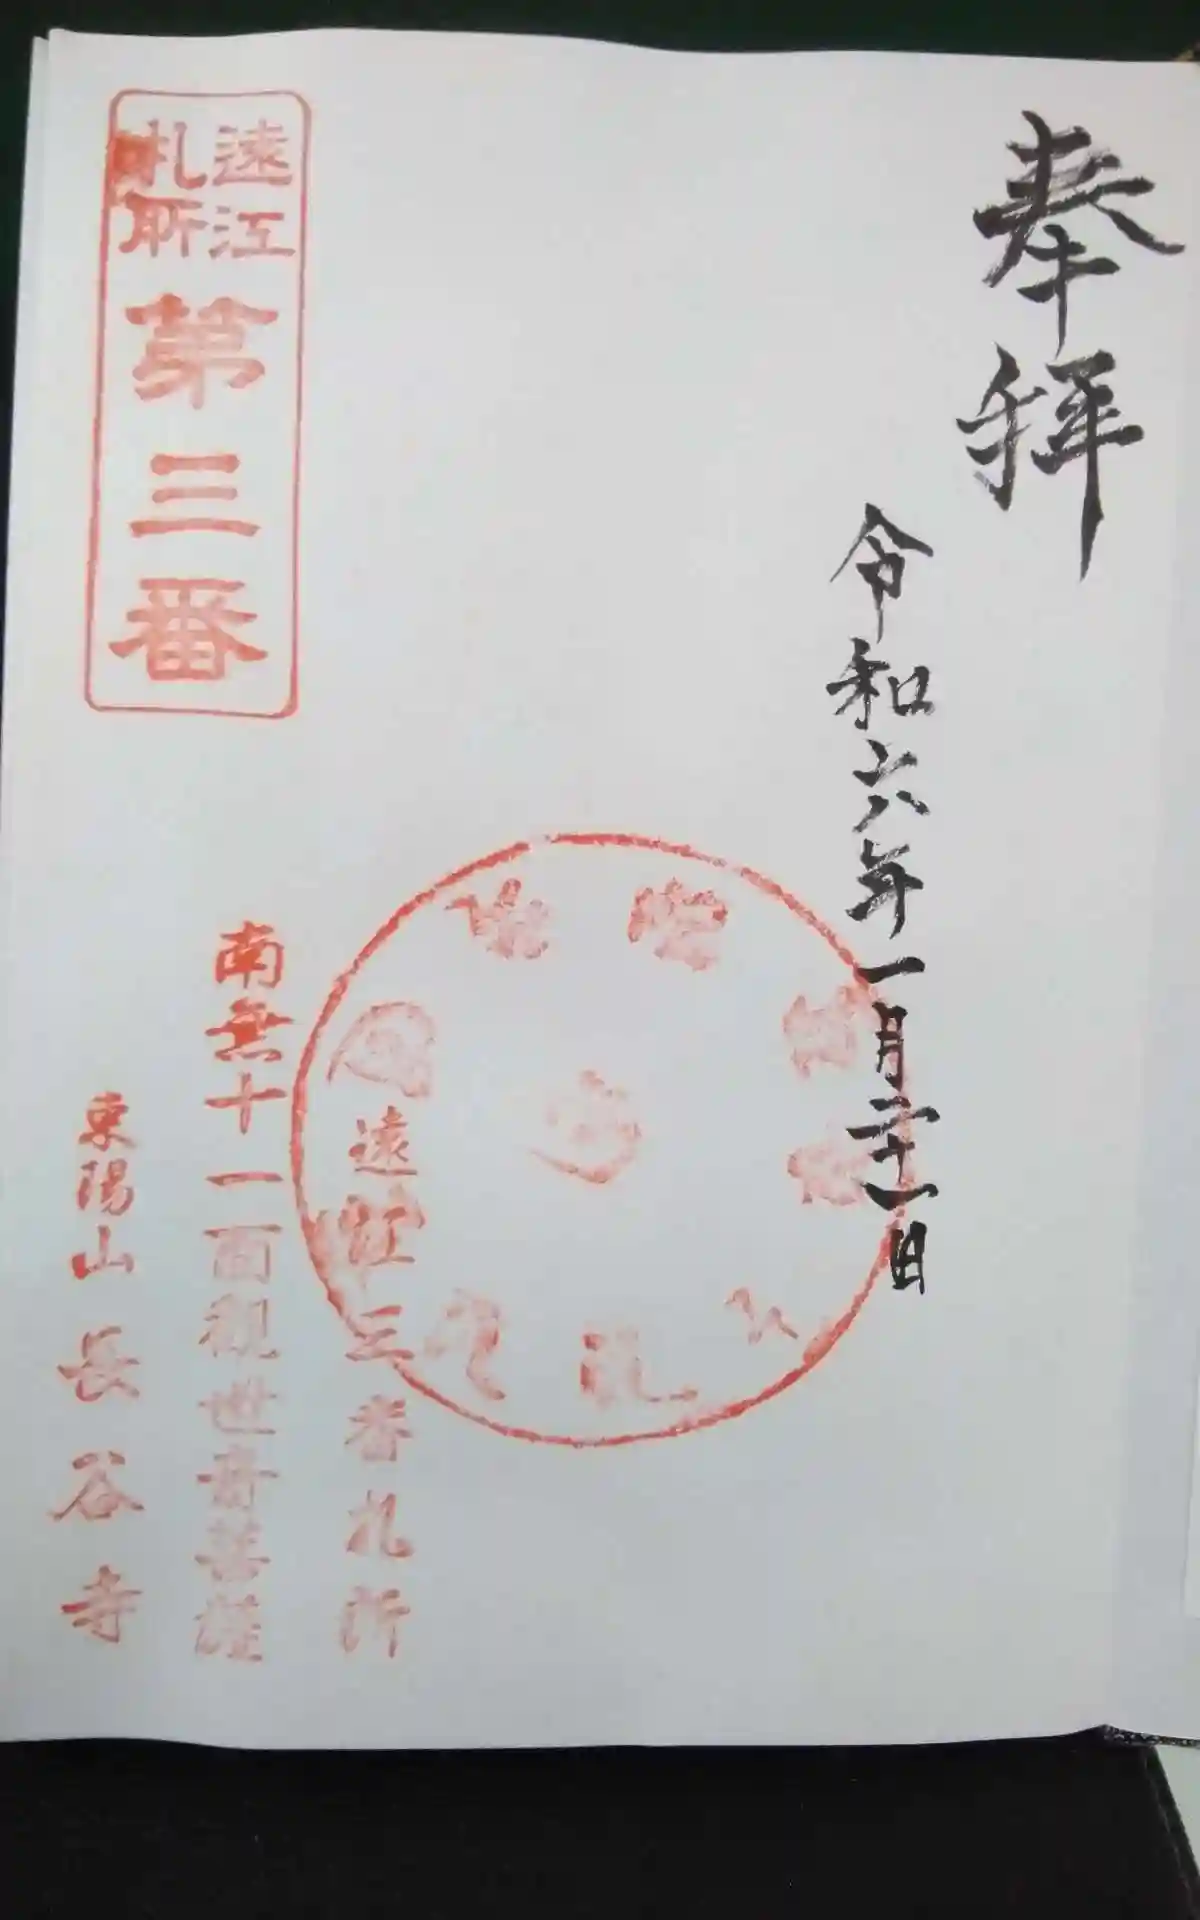 奉拝
令和六年一月二十一日
遠江
札所
第三番
遠江三番札所
南無十一面観世音菩薩
東陽山長谷寺